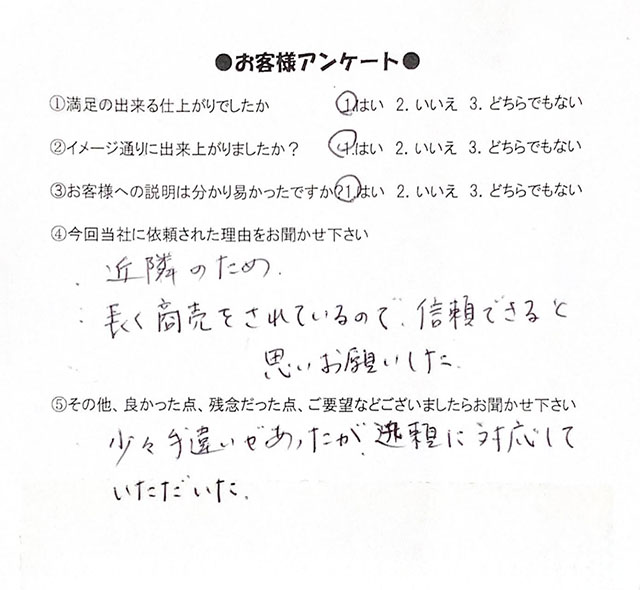 ●お客様アンケート●
①満足の出来る仕上がりでしたか 1.はい 2.いいえ 3.どちらでもない
②イメージ通りに出来上がりましたか？ 1.はい 2.いいえ 3.どちらでもない
③お客様への説明は分かり易かったですか？1.はい 2.いいえ 3.どちらでもない
④今回当社に依頼された理由をお聞かせ下さい
・近隣のため.
・長く商売をされているので、信頼できると
思いお願いした.
⑤その他、良かった点、残念だった点、ご要望などございましたらお聞かせ下さい
少々手違いがあったが、に対応して
いただいた.